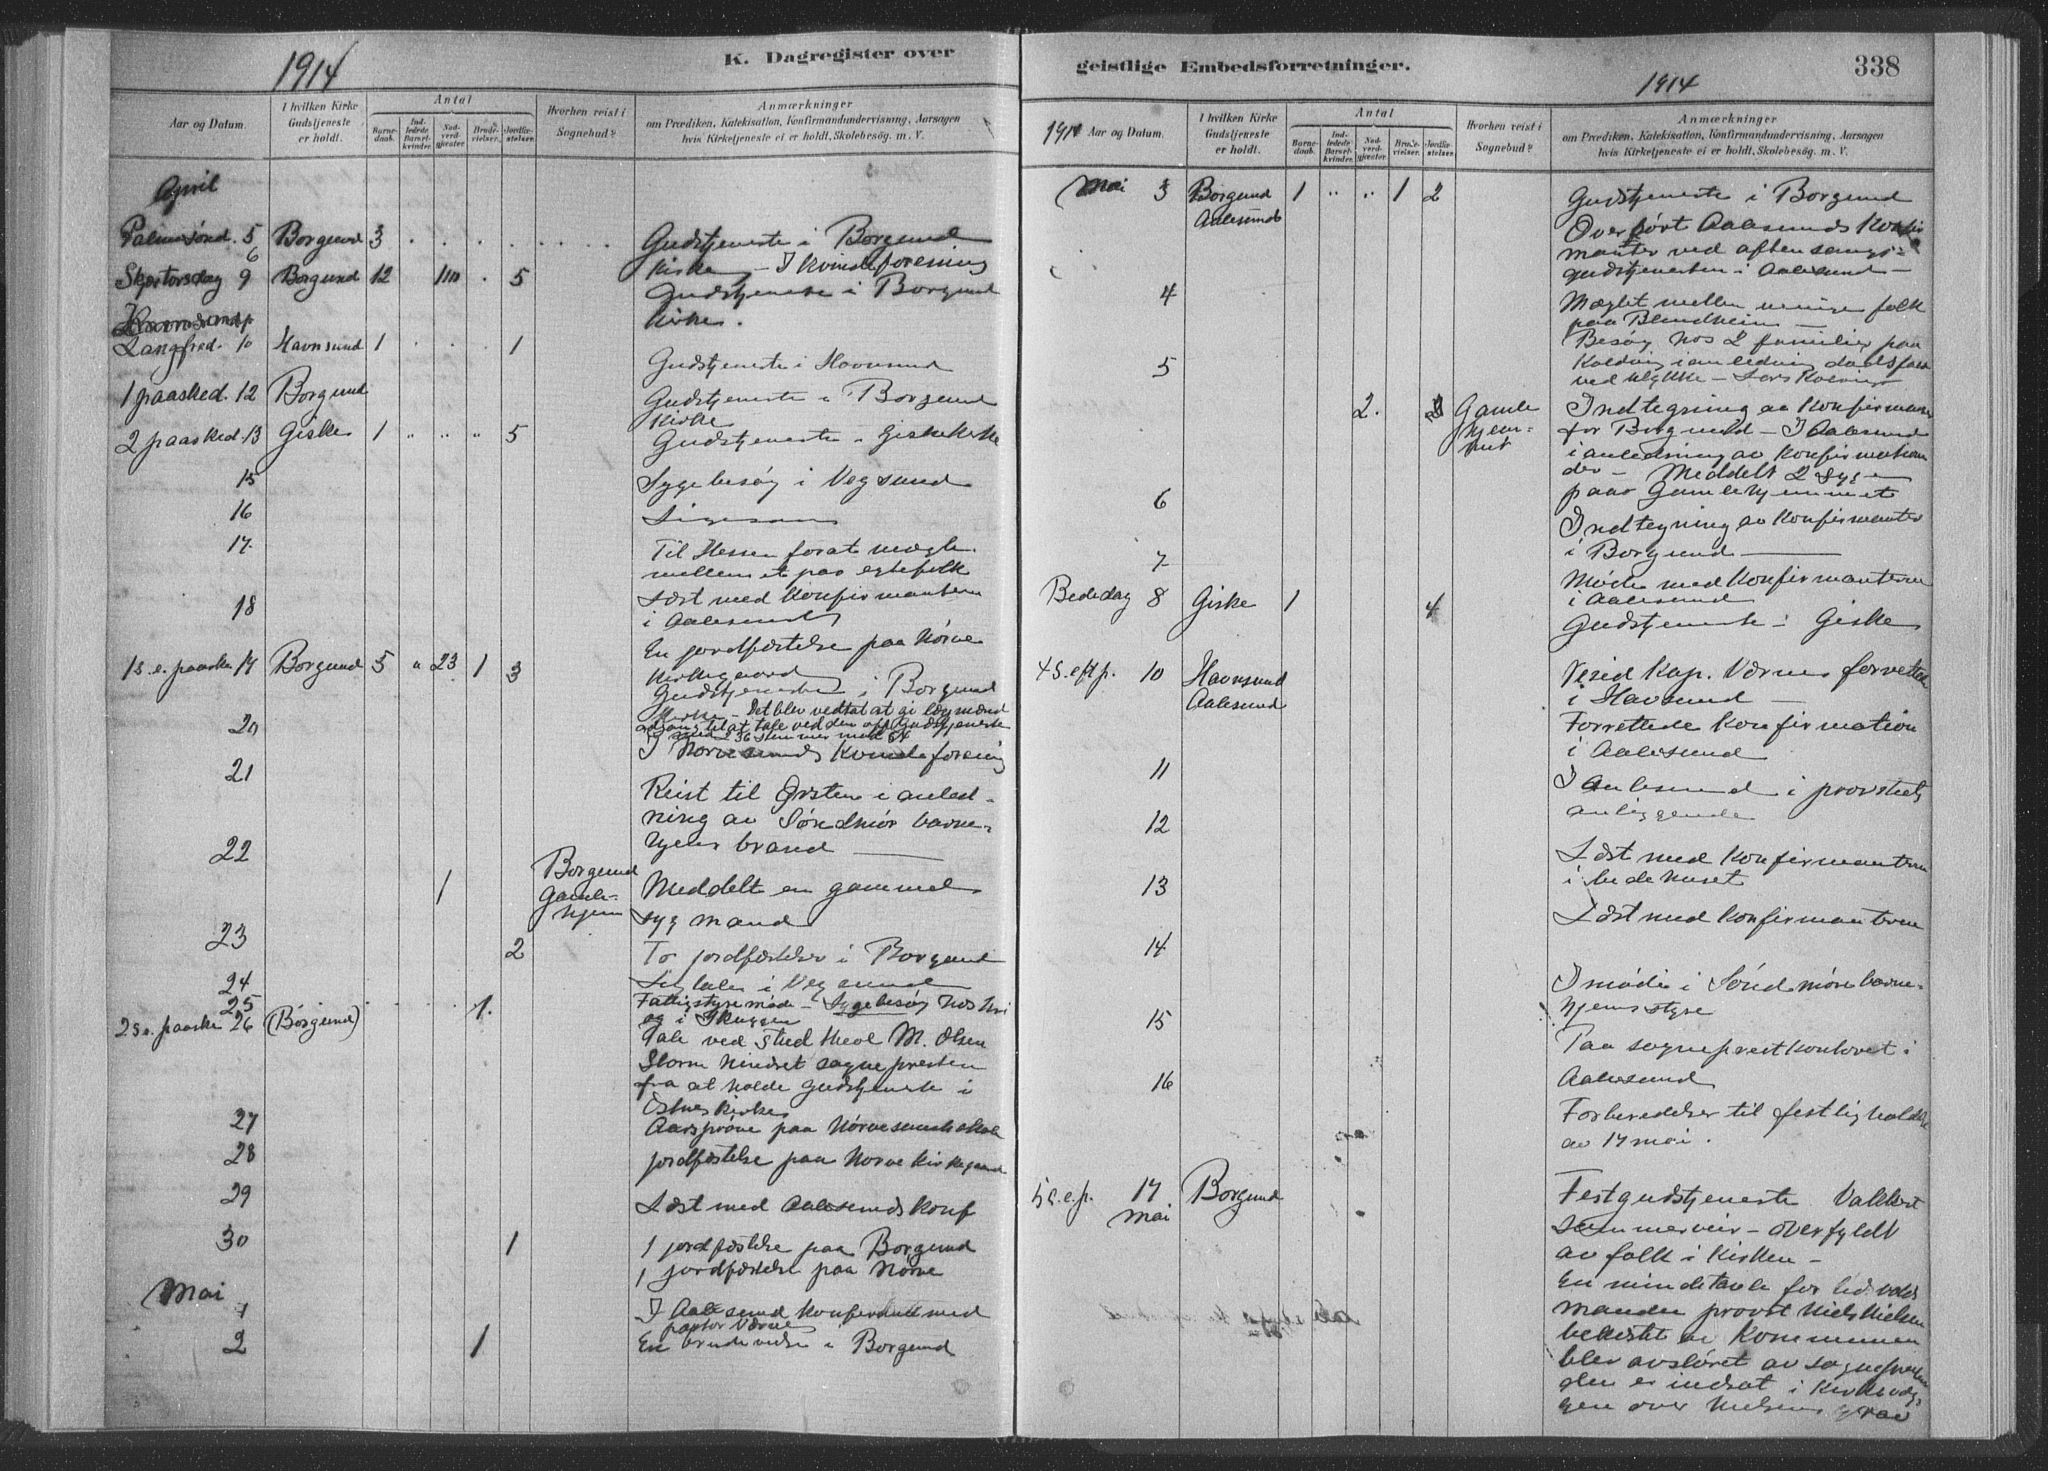 1914
K. Dagregister over
Aar og Datum.
I hvilken Kirke Gudstjeneste er holdt.
Antal
Barnedaab.
Indledede Barselkvinder.
Nadverdgjæster.
Brudevielser.
Jordfæstelser.
Hvorhen reist i Sognebud?
Anmærkninger
om Prædiken, Katekisation, Konfirmandundervisning, Aarsagen
hvis Kirketjeneste ei er holdt, Skolebesøg. m. V.
April
Palmesønd. 5 Borgund 3 Gudstjeneste i Borgund
6 Kirke – I kvindeforening
Skjærtorsdag 9 Borgund 12 5 Gudstjeneste i Borgund
Kirke.
Langfred. 10 Havnsund 1 1
Gudstjeneste i Havnsund
1 paasked. 12 Borgund Gudstjeneste i Borgund
Kirke
2 paasked. 13 Giske 1 " " " 5 Gudstjeneste i Giske kirke
15 Sygebesøg i Vegsund
16 Ligesaa
17. Til Hessen forat mægle
mellem et par egtefolk
18 Læst med konfirmanterne
i Aalesund
En jordfæstelse paa Nørve
1 s. e. paaske 19 Borgund 5 " 23 1 3 Kirkegaard
Gudstjeneste i Borgund
Kirke – Det blev vedtat at gi lægmænd
20 adgang til at tale ved den off. Gudstjeneste
med 36 stemmer mot
I Nørvesunds Kvindeforening
21 Reist til Ørsten i anled-
ning av Søndmør barne-
hjems brand
22 1 Borgund Gamle-hjem Meddelt en gammel
syg mand
23 2 To jordfæstelser i Borgund
24 i Vegsund
25 1. Fattigstyremøde – Sygebesøg hos
2 s. e. paaske 26 (Borgund) og i Skuggen
Tale ved stud theol M. Olsen
Storm hindret sognepresten
fra at holde gudstjeneste i
kirke
27 Aarsprøve paa Nørvesund skole
28 jordfæstelse paa Nørve Kirkegaard
29 Læst med Aalesunds konf
30 1 1 jordfæstelse paa Borgund
1 jordfæstelse paa Nørve
Mai
1 I Aalesund Konferert med
pastor Værne
2 1 En brudevielse i Borgund
geistlige Embedsforretninger.
338
1914
1914 Aar og Datum.
I hvilken Kirke Gudstjeneste er holdt.
Antal
Barnedaab.
Indledede Barselkvinder.
Nadverdgjæster.
Brudevielser.
Jordfæstelser.
Hvorhen reist i Sognebud?
Anmærkninger
om Prædiken, Katekisation, Konfirmandundervisning, Aarsagen
hvis Kirketjeneste ei er holdt, Skolebesøg. m. V.
Mai 3 Borgund Aalesund 1 " " 1 2 Gudstjeneste i Borgund
Overhørt Aalesunds Konfir
manter ved aftensangs-
gudstjenesten i Aalesund –
4 Mæglet mellem uenige folk
paa Blindheim –
Besøg hos 2 familier paa
5 Kolvig i anledning dødsfald
ved ulykke – Lars Kolvig
2. Gamle hjemmet Indtegning av Konfirmanter
for Borgund – I Aalesund
i anledning av Konfirmation
der – Meddelt 2 syge
paa Gamlehjemmet
6 Indtegning av Konfirmanter
i Borgund
7 Møte med Konfirmanterne
i Aalesund
Bededag 8 Giske 1 4 Gudstjeneste i Giske
4 S. eft p. 10 Havnsund Aalesund Resid Kap. Værne forrettede
i Havsund –
Forrettede Konfirmation
i Aalesund
11 I Aalesund i provstiets
anliggende
12 Læst med Konfirmanterne
i bedehuset
13 Læst med Konfirmanterne
14 I møde i Søndmøre barne-
hjemsstyre
15 Paa sogneprestkontoret i
Aalesund
16 Forberedelser til festlighold
av 17 mai.
5 S. e. p. 17 mai Borgund Festgudstjeneste Vakkert
sommerveir – overfyldt
av folk i kirken –
En mindetavle for Eidsvolds
manden provst Niels Nielsen
bekostet av Kommunen
blev avsløret av sognepresten
den er indsat i Kirkevæg-
gen over Nielsens grav